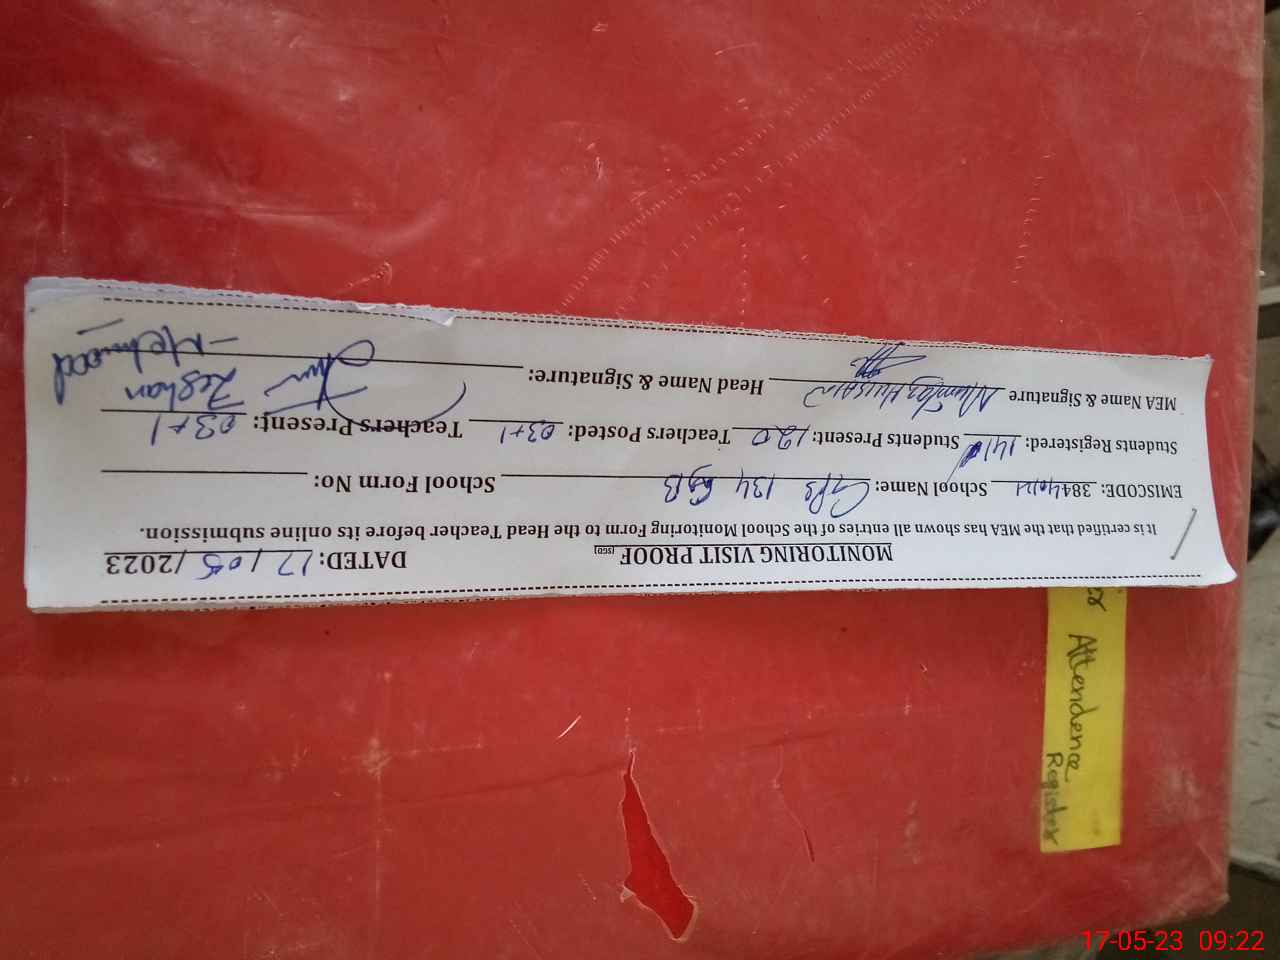 MONITORING VISIT PROOF [SGD] DATED: 17/05/2023
It is certified that the MEA has shown all entries of the School Monitoring Form to the Head Teacher before its online submission.
EMISCODE: School Name: GPS 134 School Form No:
Students Registered: 141 Students Present: 120 Teachers Posted: 03+1 Teachers Present: 03+1
MEA Name & Signature Mumtaz Hussain Head Name & Signature: Zeshan
Mehmood
Attendence
Register
17-05-23 09:22